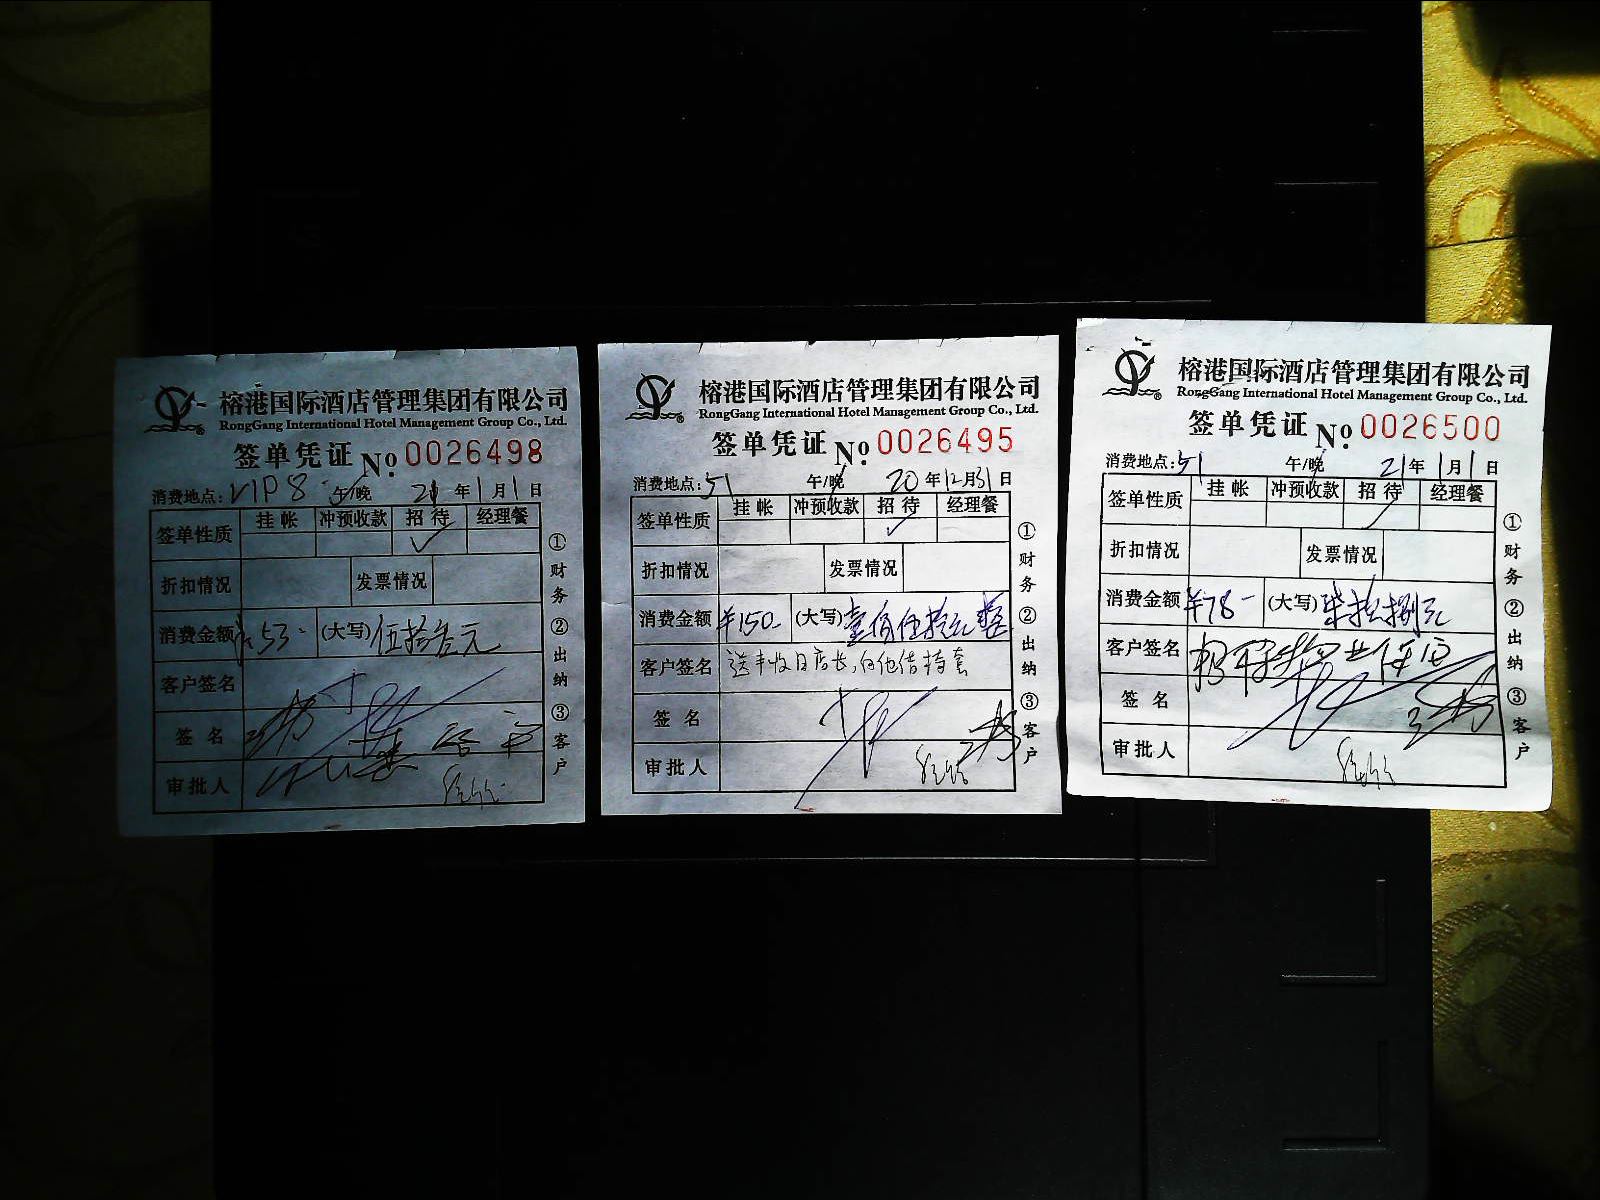 榕港国际酒店管理集团有限公司
RongGang International Hotel Management Group Co., Ltd.
签单凭证 No. 0026498
消费地点: VIP8 午/晚 21年1月1日
签单性质 挂帐 冲预收款 招待 经理餐
✓
折扣情况 发票情况
消费金额 ¥53- (大写) 伍拾叁元
客户签名
签名
审批人
①财务②出纳③客户
榕港国际酒店管理集团有限公司
RongGang International Hotel Management Group Co., Ltd.
签单凭证 No. 0026495
消费地点: 51 午/晚 20年12月31日
签单性质 挂帐 冲预收款 招待 经理餐
✓
折扣情况 发票情况
消费金额 ¥150- (大写) 壹佰伍拾元整
客户签名 送丰收日店长,向他借椅套
签名
审批人
①财务②出纳③客户
榕港国际酒店管理集团有限公司
RongGang International Hotel Management Group Co., Ltd.
签单凭证 No. 0026500
消费地点: 51 午/晚 21年1月1日
签单性质 挂帐 冲预收款 招待 经理餐
✓
折扣情况 发票情况
消费金额 ¥78- (大写) 柒拾捌元
客户签名
签名
审批人
①财务②出纳③客户